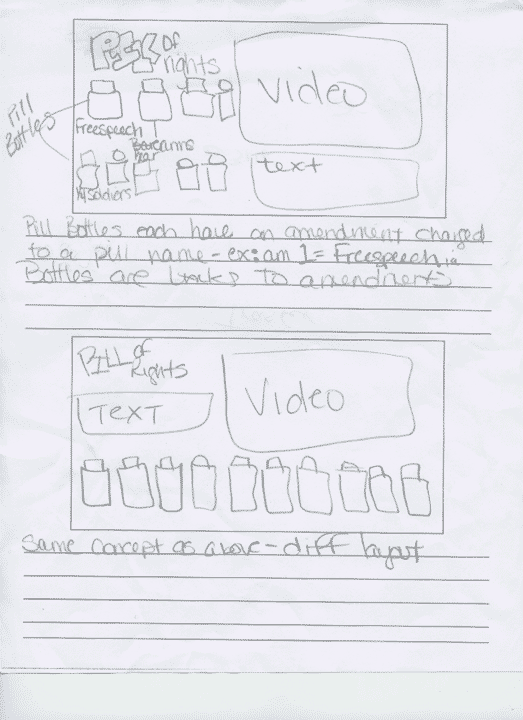 Pill Of
rights
Video
Pill
Bottles
Freespeech
Beararms
text
Pill Bottles each have an amendment changed
to a pill name - ex: am 1 = Freespeech
Bottles are links to amendments
PILL of
Rights
Video
TEXT
Same concept as above - diff layout